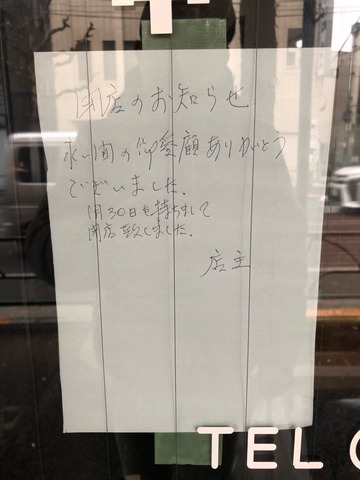 閉店のお知らせ
永い間の御愛顧ありがとう
ございました。
1月30日を持ちまして
閉店致しました。
店主
TEL